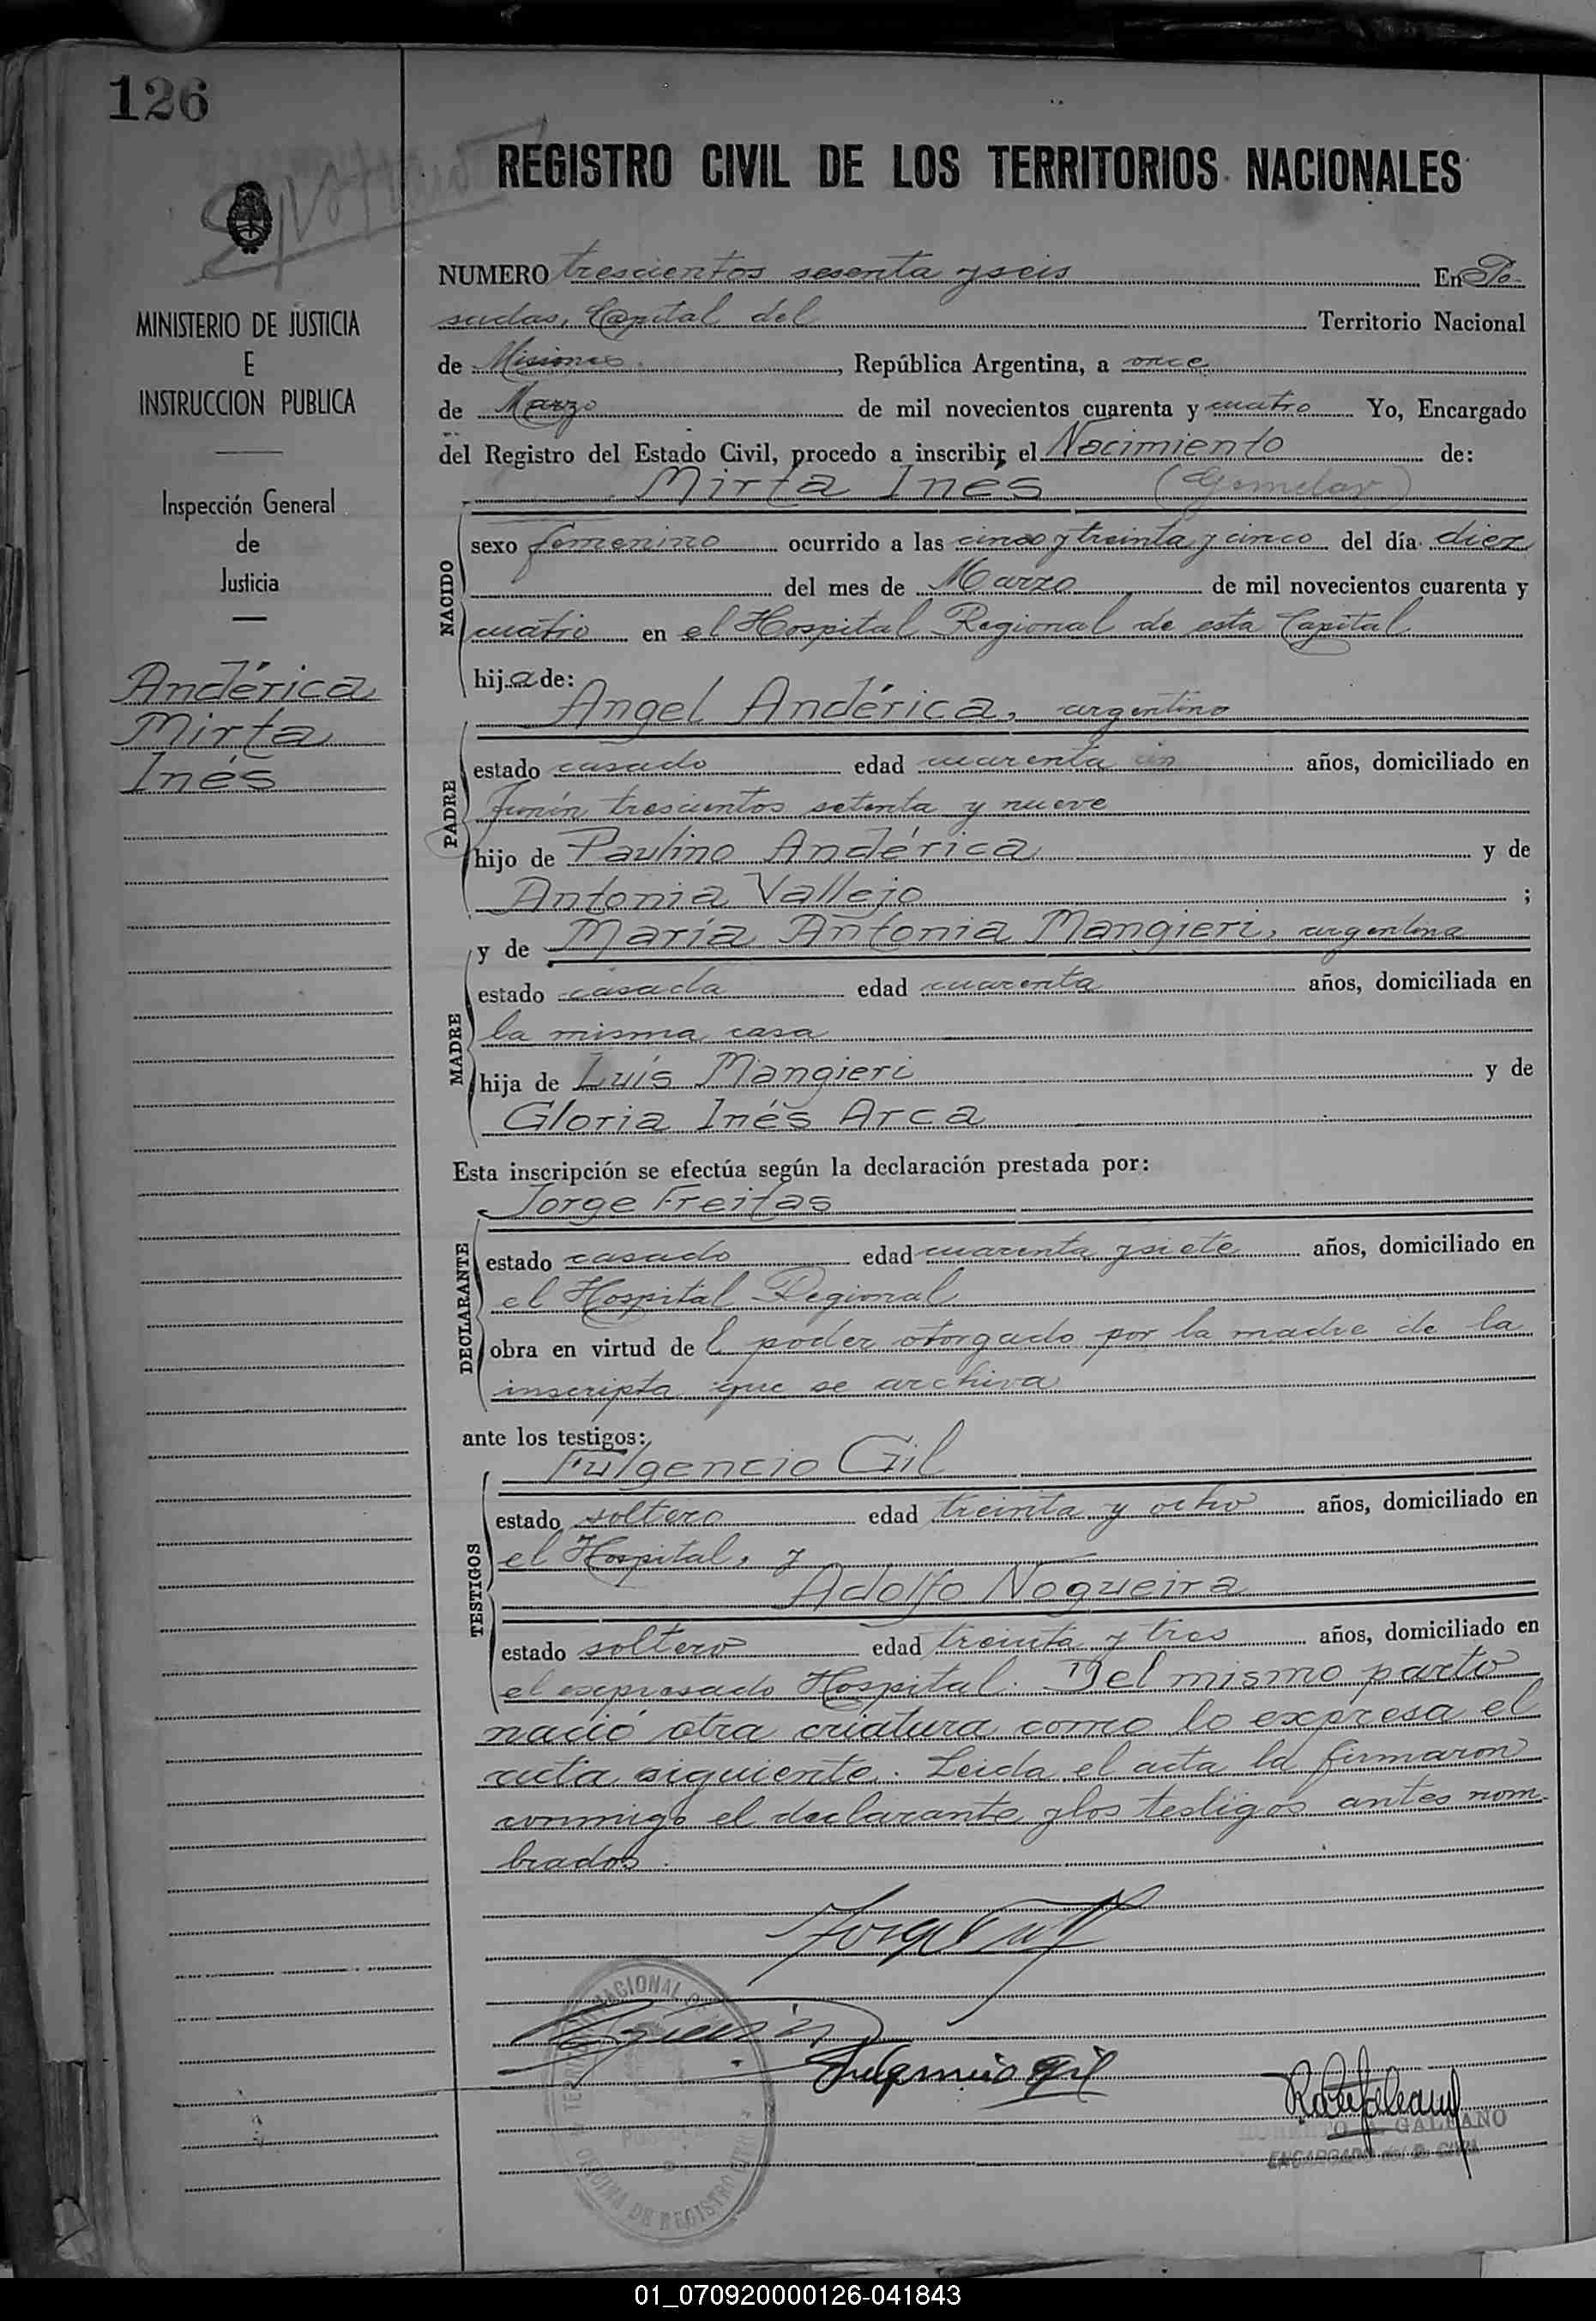 126
REGISTRO CIVIL DE LOS TERRITORIOS NACIONALES
MINISTERIO DE JUSTICIA
E
INSTRUCCION PUBLICA
Inspección General
de
Justicia
Andérica
Mirta
Inés
NUMERO trescientos sesenta y seis En Po-
sadas, Capital del Territorio Nacional
de Misiones, República Argentina, a once
de Marzo de mil novecientos cuarenta y cuatro Yo, Encargado
del Registro del Estado Civil, procedo a inscribir el Nacimiento de:
Mirta Inés (Gemelar)
NACIDO
sexo femenino ocurrido a las cinco y treinta y cinco del día diez
del mes de Marzo de mil novecientos cuarenta y
cuatro en el Hospital Regional de esta Capital
hija de:
Angel Andérica, argentino
PADRE
estado casado edad cuarenta un años, domiciliado en
Junín trescientos setenta y nueve
hijo de Paulino Andérica y de
Antonia Vallejo ;
y de María Antonia Mangieri, argentina
MADRE
estado casada edad cuarenta años, domiciliada en
la misma casa
hija de Luis Mangieri y de
Gloria Inés Arca
Esta inscripción se efectúa según la declaración prestada por:
Jorge Freitas
DECLARANTE
estado casado edad cuarenta y siete años, domiciliado en
el Hospital Regional
obra en virtud del poder otorgado por la madre de la
inscripta que se archiva
ante los testigos:
Fulgencio Gil
TESTIGOS
estado soltero edad treinta y ocho años, domiciliado en
el Hospital, y
Adolfo Nogueira
estado soltero edad treinta y tres años, domiciliado en
el expresado Hospital. Del mismo parto
nació otra criatura como lo expresa el
acta siguiente. Leida el acta la firmaron
conmigo el declarante y los testigos antes nom-
brados.
Fulgencio Gil
GALEANO
ENCARGADO del R. CIVIL
OFICINA DE REGISTRO CIVIL
01_070920000126-041843